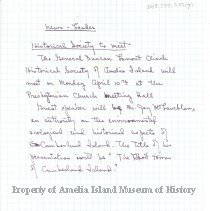 News - Leader
Historical Society to meet
The General Duncan Lamont Clinch
Historical Society of Amelia Island will
meet on Monday April 10th at the
Presbyterian Church Meeting Hall
Guest speaker will be Mr Jay
an authority on the environmental
ecological and historical aspects of
Cumberland Island. The title of his
presentation will be "The
of Cumberland Island."
Property of Amelia Island Museum of History